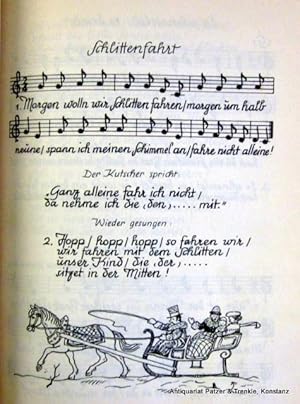 Schlittenfahrt
1. Morgen wolln wir Schlitten fahren/morgen üm halb
neüne/spann ich meinen Schimmel an/fahre nicht alleine!
Der Kutscher spricht:
„Ganz alleine fahr ich nicht/
da nehme ich die, den, ..... mit."
Wieder gesungen:
2. Hopp/hopp/hopp/so fahren wir/
wir fahren mit dem Schlitten/
unser Kind/die, der, .....
sitzet in der Mitten!
©Antiquariat Patzer & Trenkle, Konstanz